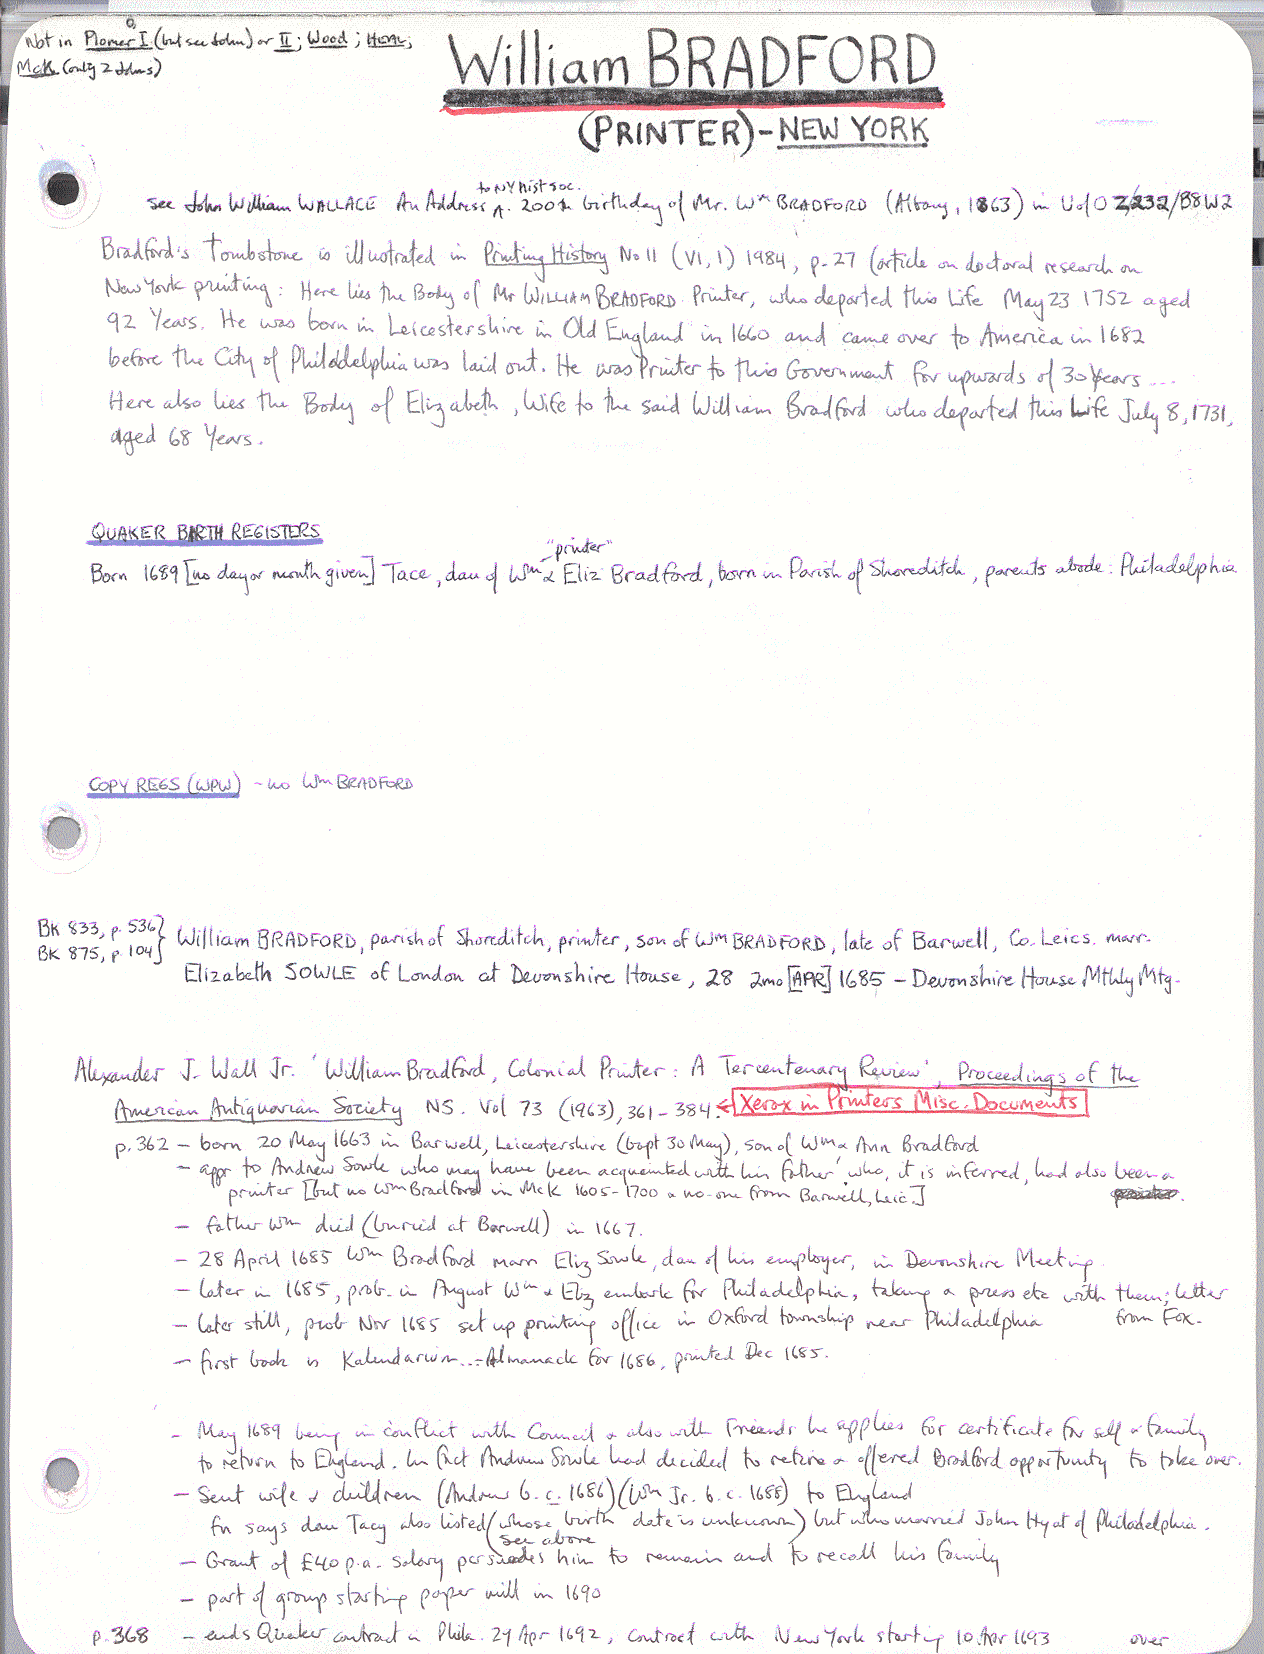 Not in Plomer I (but see John) or II; Wood; HEAL;
McK (only 2 Johns)
William BRADFORD
(PRINTER) - NEW YORK
to NY Hist Soc.
see John William WALLACE An Address ʌ. 200th birthday of Mr. Wm BRADFORD (Albany, 1863) in U of O Z/232/B8W2
Bradford's Tombstone is illustrated in Printing History No 11 (VI, 1) 1984, p. 27 (article on doctoral research on
New York printing: Here lies the Body of Mr WILLIAM BRADFORD Printer, who departed this Life May 23 1752 aged
92 Years. He was born in Leicestershire in Old England in 1660 and came over to America in 1682
before the City of Philadelphia was laid out. He was Printer to this Government for upwards of 30 Years ...
Here also lies the Body of Elizabeth, Wife to the said William Bradford who departed this Life July 8, 1731,
aged 68 Years.
QUAKER BIRTH REGISTERS
"printer"
Born 1689 [no day or month given] Tace, dau of Wm & Eliz Bradford, born in Parish of Shoreditch, parents abode: Philadelphia
COPY REGS (WPW) - no Wm BRADFORD
BK 833, p. 536}
BK 875, p 104}
William BRADFORD, parish of Shoreditch, printer, son of Wm BRADFORD, late of Barwell, Co. Leics. marr.
Elizabeth SOWLE of London at Devonshire House, 28 2mo [APR] 1685 - Devonshire House Mthly Mtg.
Alexander J. Wall Jr. 'William Bradford, Colonial Printer: A Tercentenary Review', Proceedings of the
American Antiquarian Society NS. Vol 73 (1963), 361-384. ← Xerox in Printers Misc. Documents
p. 362 - born 20 May 1663 in Barwell, Leicestershire (bapt 30 May), son of Wm & Ann Bradford
- appr to Andrew Sowle who may have been acquainted with his father 'who, it is inferred, had also been a
printer [but no Wm Bradford in McK 1605-1700 & no-one from Barwell, Leic.]
- father Wm died (buried at Barwell) in 1667.
- 28 April 1685 Wm Bradford marr Eliz Sowle, dau of his employer, in Devonshire Meeting.
- later in 1685, prob. in August Wm & Eliz embark for Philadelphia, taking a press etc with them; letter
from Fox.
- later still, prob Nov 1685 set up printing office in Oxford township near Philadelphia
- first book is Kalendarium ... Almanack for 1686, printed Dec 1685.
- May 1689 being in conflict with Council & also with Friends he applies for certificate for self & family
to return to England. In fact Andrew Sowle had decided to retire & offered Bradford opportunity to take over.
- Sent wife & children (Andrew b. c. 1686) (Wm Jr. b. c. 1688) to England
fn says dau Tacy also listed (whose birth date is unknown) but who married John Hyat of Philadelphia.
see above
- Grant of £40 p.a. salary persuades him to remain and to recall his family
- part of group starting paper mill in 1690
p. 368 - ends Quaker contract in Phila. 29 Apr 1692, contract with New York starting 10 Apr 1693 over